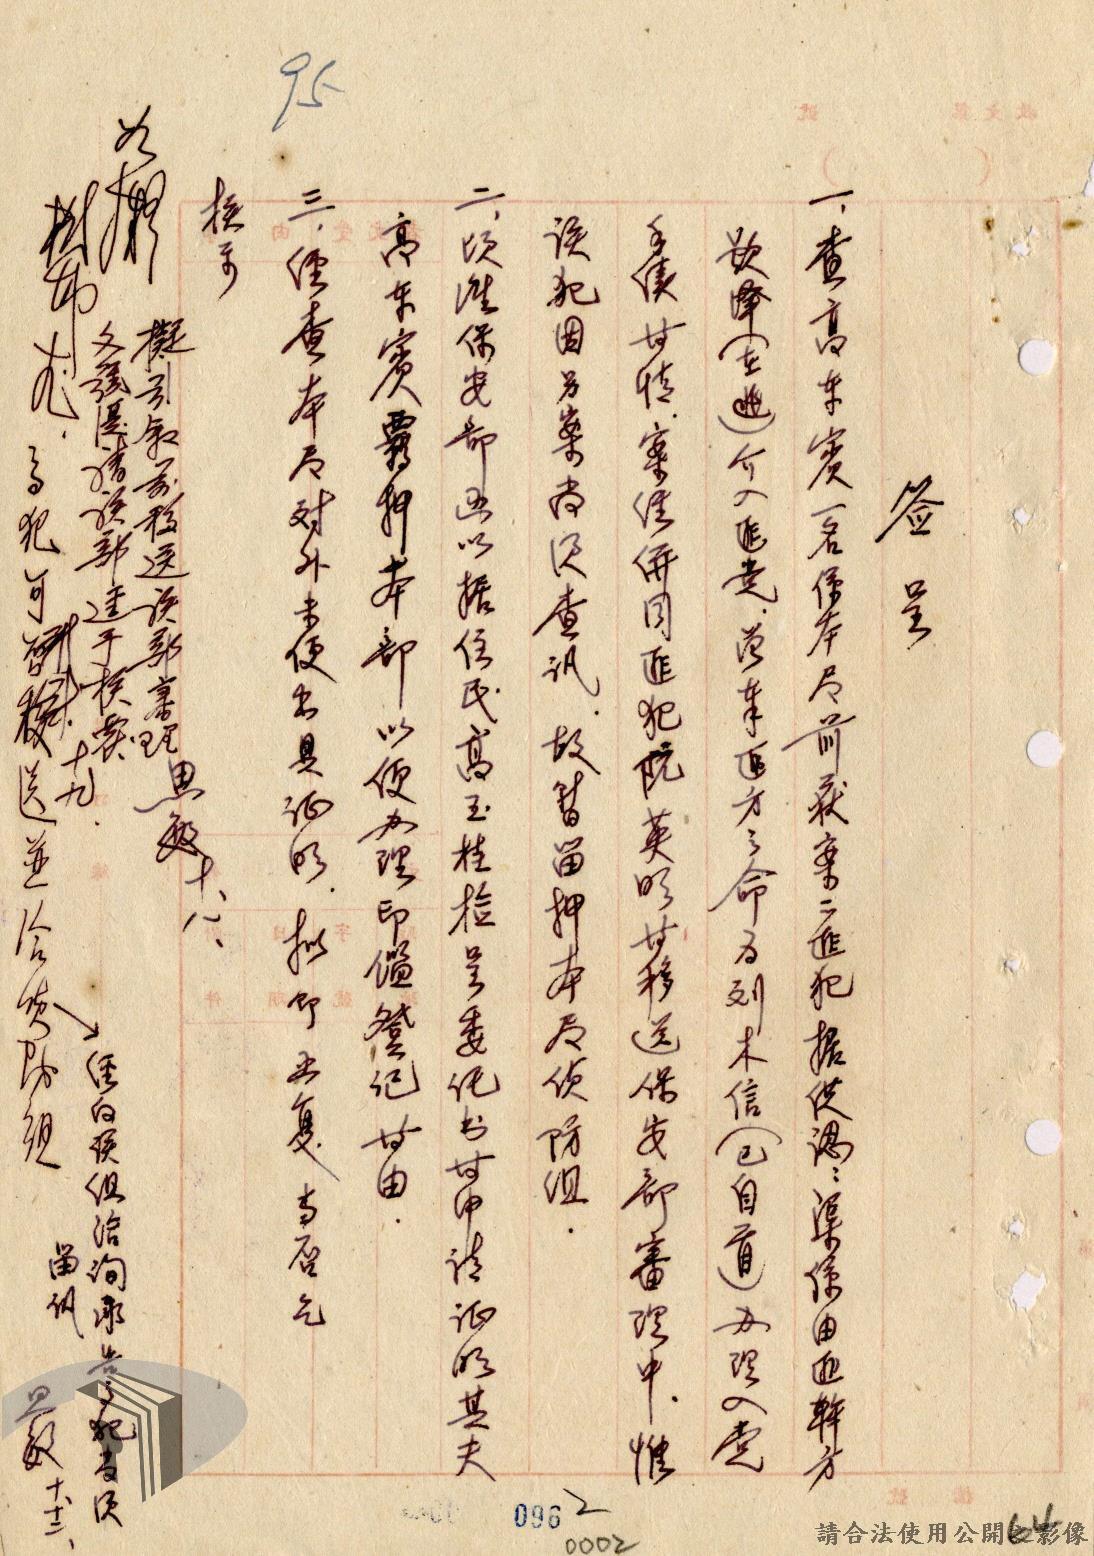 95
簽呈
一、查高東賓一名係本局前獲案之匪犯據供認：渠係由匪幹方
歐陣（在逃）介入匪党，並奉匪方之命為列木信（已自首）办理入党
手續等情，案經併同匪犯阮英明等移送保安部審理中，惟
該犯因另案尚須查訊，故暫留押本局偵防組。
二、頃准保安部函以据住民高玉桂檢呈委託书等申請証明其夫
高東賓羈押本部以便办理印鑑登記等由。
三、經查本局对外未便出具証明，拟即函复，當否乞
核示
擬引敘前移送該部審理
文號還請該部逕予核發
思敏 十、八、
如擬
十九、
高犯可暫移送並洽偵防組
經向該組洽詢承告高犯尚須
留訊 思敏 十、十二、
096
2
0002
64
請合法使用公開之影像